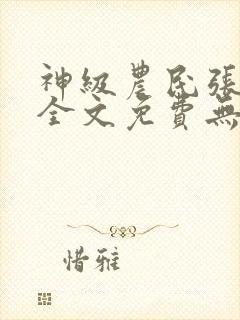 神級農民張
全文免費無
惜雅